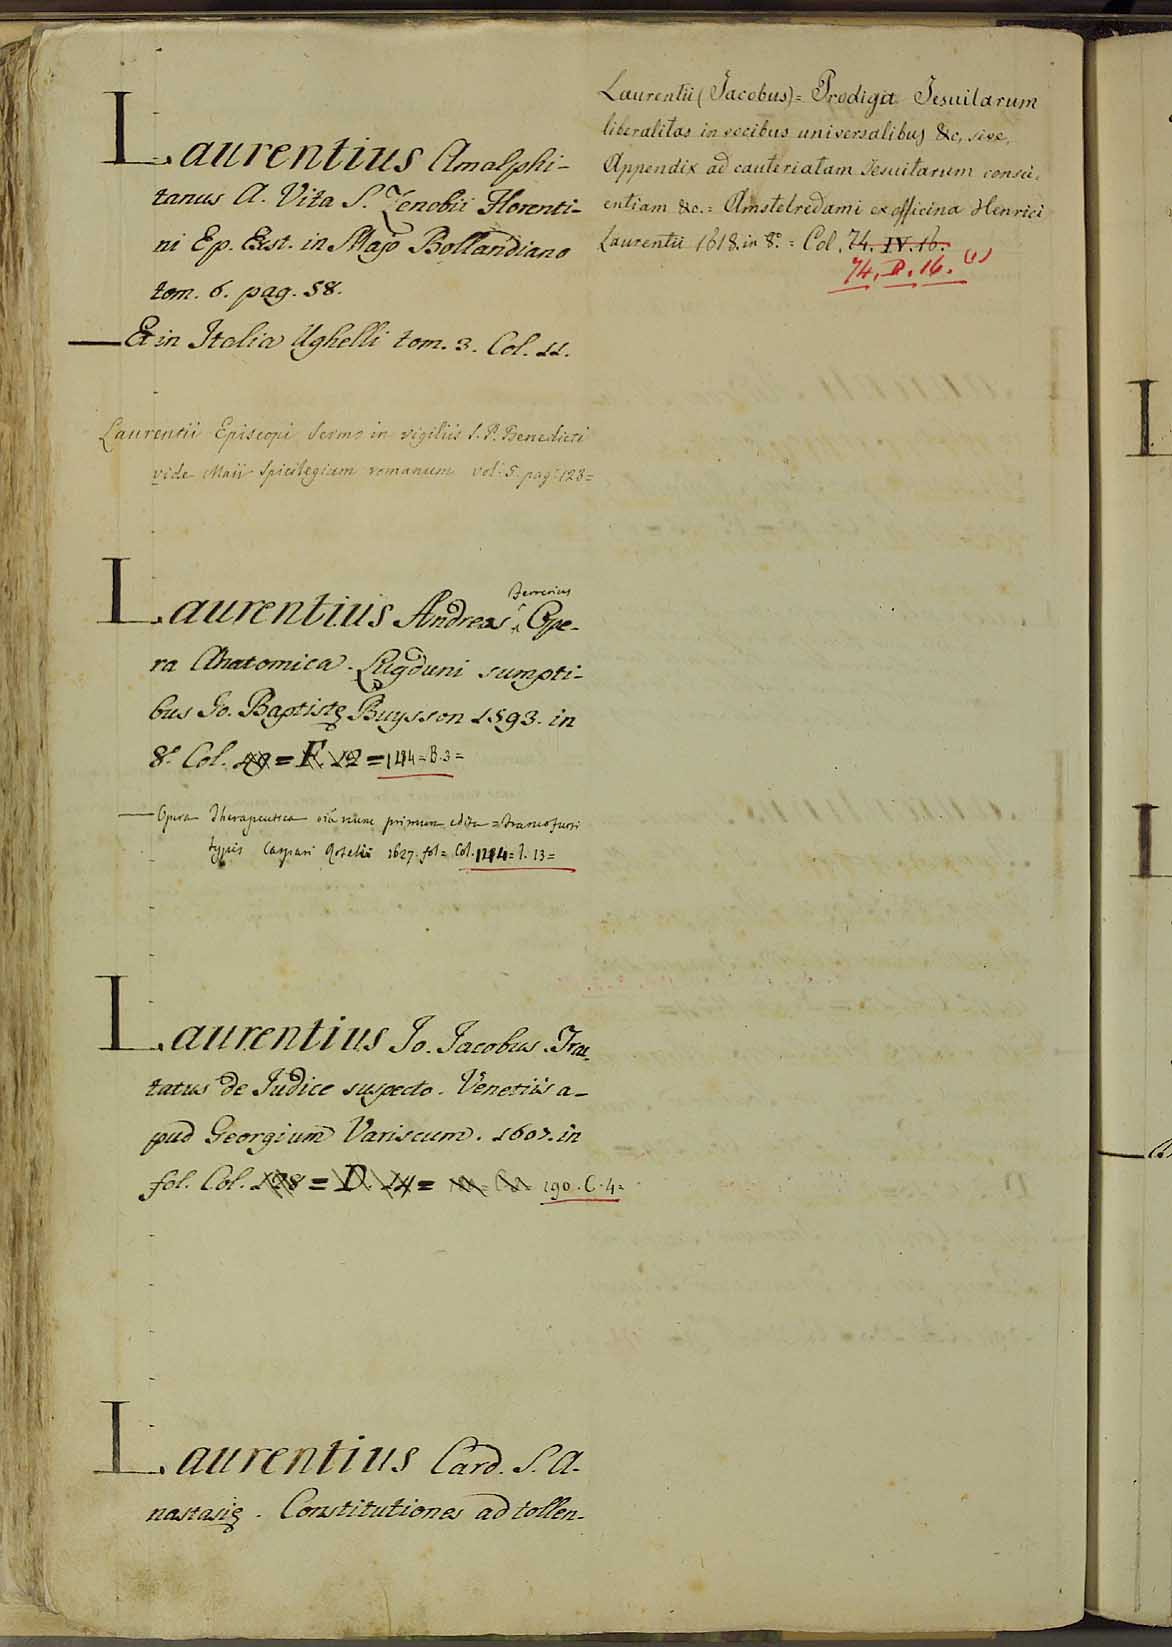 Laurentius Amalphi-
tanus A. Vita S. Zenobii Florenti-
ni Ep. Exst. in Majo Bollandiano
tom. 6. pag. 58.
Et in Italia Ughelli tom. 3. Col. 11.
Laurentii Episcopi Sermo in vigiliis S. P. Benedicti
vide Maii Spicilegium romanum vol. 5. pag. 128=
Laurentius Andreas Ferrerius Ope-
ra Anatomica. Lugduni sumpti-
bus Jo. Baptistę Buysson 1593. in
8.º Col. 49 = F. 12 = 1284=B.3=
Opera Therapeutica oĩa nunc primum edita = Francofurti
typis Caspari Rotelii 1627. fol = Col. 1284= I. 13=
Laurentius Jo. Jacobus. Trac-
tatus de Judice suspecto. Venetiis a-
pud Georgium Variscum. 1607. in
fol. Col. 128 = D. 14 = 190. C. 4=
Laurentius Card. S. A-
nastasię. Constitutiones ad tollen-
Laurentii (Jacobus)= Prodiga Jesuitarum
liberalitas in vocibus universalibus &c, sive,
Appendix ad cauteriatam Jesuitarum consci-
entiam &c.= Amstelredami ex officina Henrici
Laurentii 1618. in 8.º = Col. 74. IV. 16.
74. D. 16. (1)